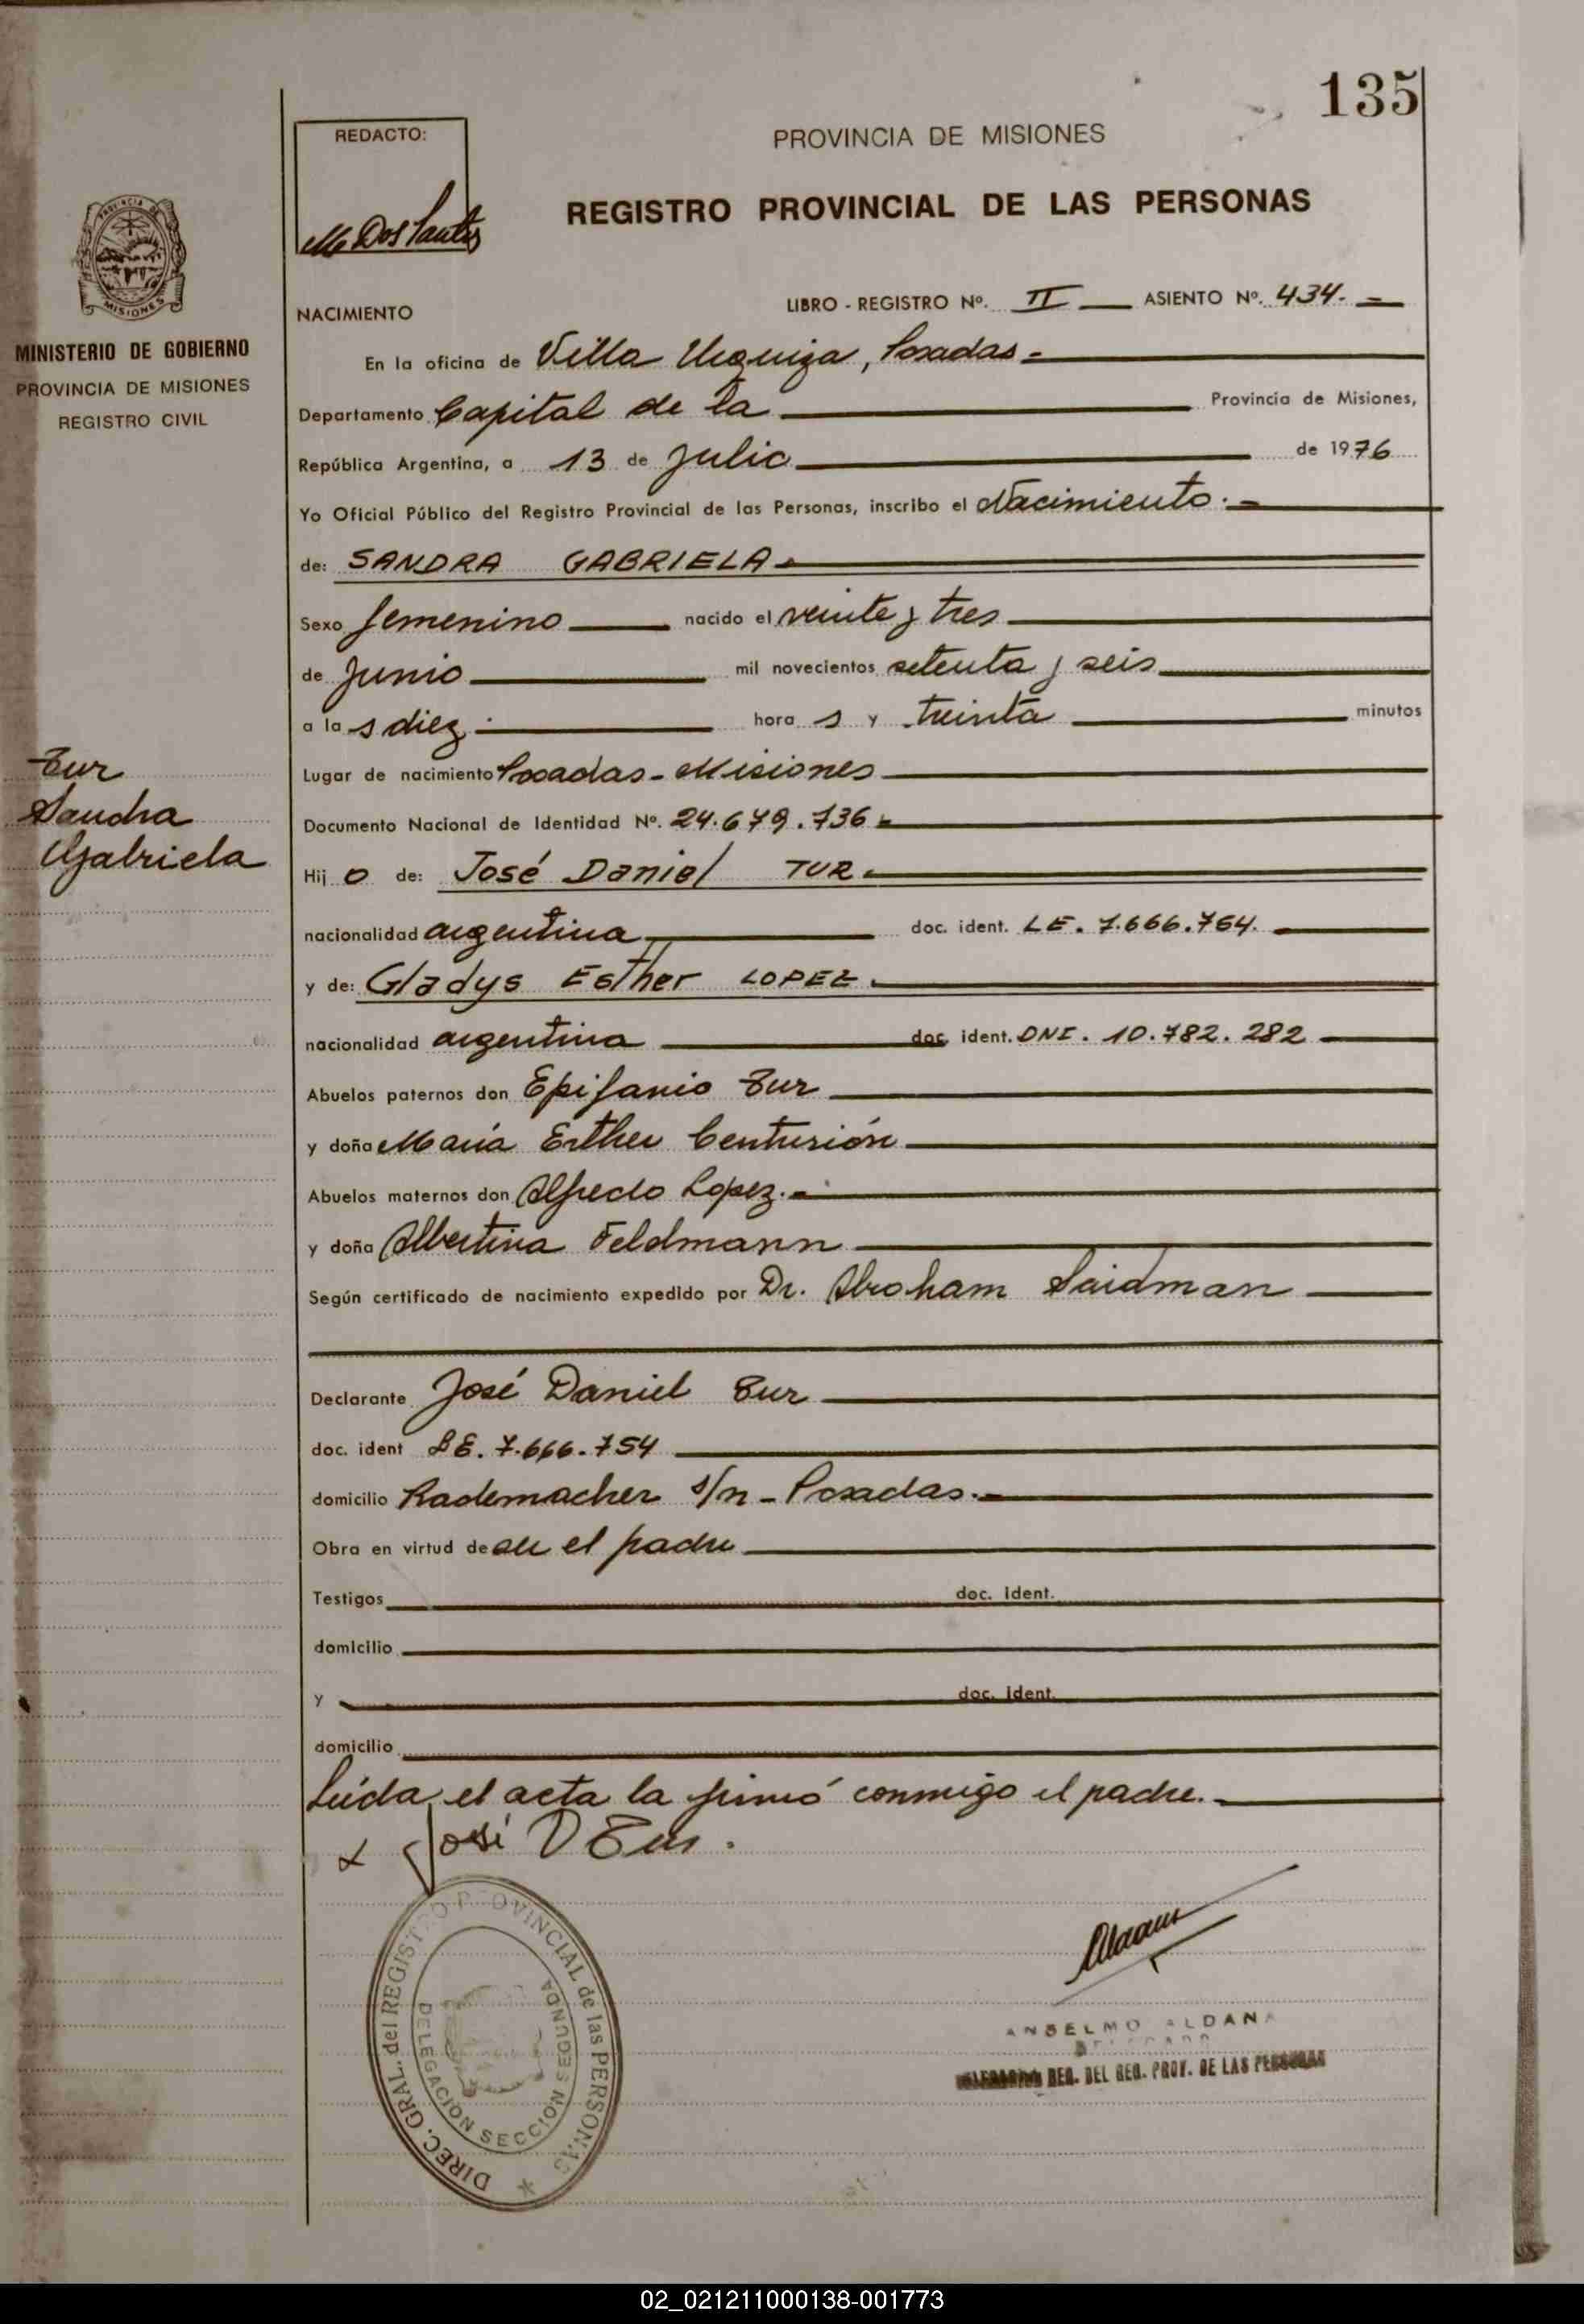 135
REDACTO:
M Dos Santos
PROVINCIA DE MISIONES
REGISTRO PROVINCIAL DE LAS PERSONAS
PROVINCIA DE
MISIONES
MINISTERIO DE GOBIERNO
PROVINCIA DE MISIONES
REGISTRO CIVIL
NACIMIENTO LIBRO - REGISTRO Nº. II ASIENTO Nº. 434.-
En la oficina de Villa Urquiza, Posadas.-
Departamento Capital de la Provincia de Misiones,
República Argentina, a 13 de Julio de 1976
Yo Oficial Público del Registro Provincial de las Personas, inscribo el Nacimiento.-
de: SANDRA GABRIELA.-
Sexo femenino nacido el veinte y tres
de Junio mil novecientos setenta y seis
a la s diez.- hora s y treinta minutos
Lugar de nacimiento Posadas - Misiones
Documento Nacional de Identidad Nº. 24.679.736.-
Hij o de: José Daniel TUR.-
nacionalidad argentina doc. ident. LE. 7.666.754.
y de: Gladys Esther LOPEZ.
nacionalidad argentina doc. ident. DNI. 10.782.282
Abuelos paternos don Epifanio Tur
y doña María Esther Centurión
Abuelos maternos don Alfredo Lopez.-
y doña Albertina Feldmann
Según certificado de nacimiento expedido por Dr. Abraham Saidman
Declarante José Daniel Tur
doc. ident LE. 7.666.754
domicilio Rademacher s/n - Posadas.-
Obra en virtud de ser el padre
Testigos doc. ident.
domicilio
y doc. ident.
domicilio
Leída el acta la firmó conmigo el padre.-
x José D Tur.
Tur
Sandra
Gabriela
DIREC. GRAL. del REGISTRO PROVINCIAL de las PERSONAS
DELEGACION SECCION SEGUNDA
ANSELMO ALDANA
DELEGADO
REG. DEL REG. PROV. DE LAS PERSONAS
02_021211000138-001773